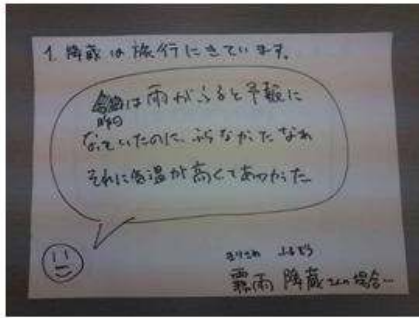 1 降蔵は旅行にきています。
今日は雨がふると予報に
なっていたのに、ふらなかたなあ
それに気温が高くてあつかった
きりさめ ふるぞう
霧雨 降蔵さんの場合